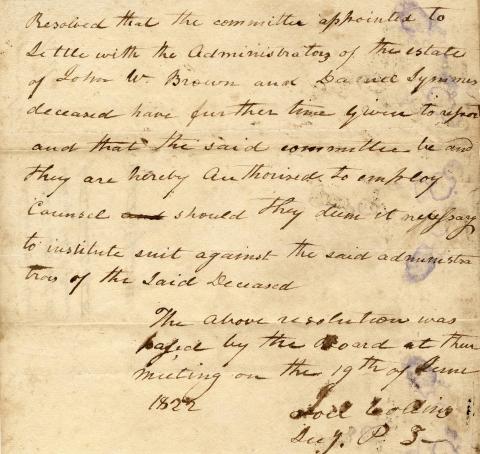 Resolved that the committee appointed to
Settle with the Administrators of the estate
of John W Brown and Daniel Symmes
deceased have further time given to report
and that the said committee be and
they are hereby Authorised to employ
Counsel and should they dem it nessessary
to institute suit against the said administra
trors of the Said Deceased
The above resolution was
passed by the Board at their
meeting on the 19th of June
1822
Joel Collins
Secy. P. T